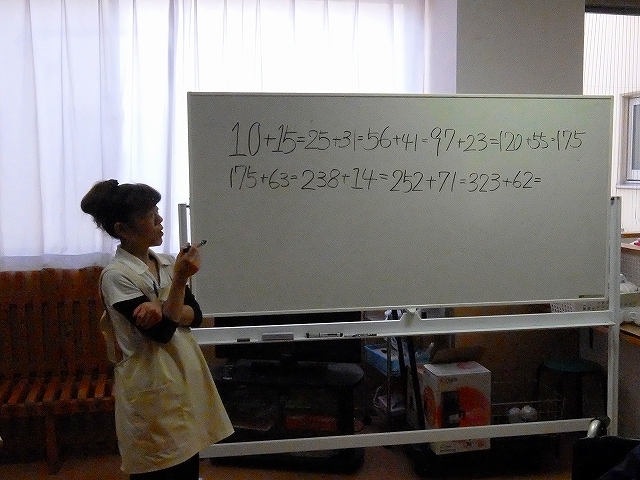 10+15=25+31=56+41=97+23=120+55=175
175+63=238+14=252+71=323+62=